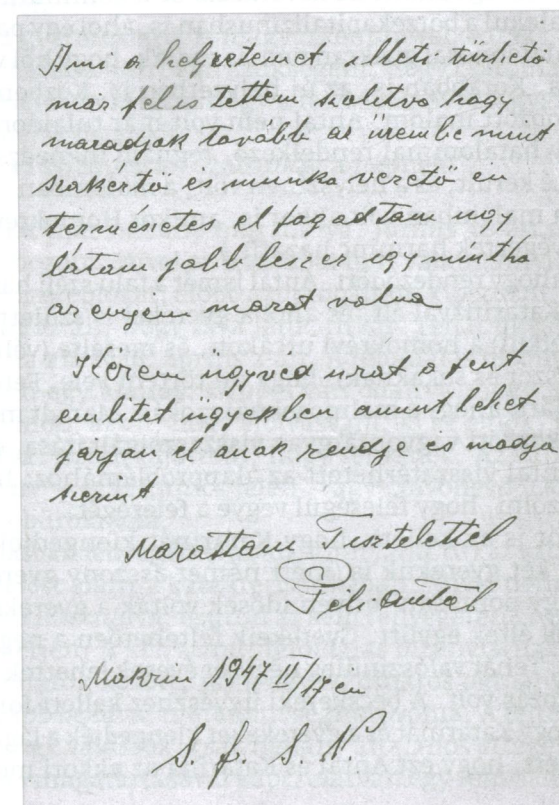 Ami a helyzetemet illeti türhető
már fel is tettem szolitva hogy
maradjak tovább az üzembe mint
szakértő és munka vezető en
természetes el fogadtam ugy
látam jobb lesz ez igy mintha
az enyém marat volna
Kerem ügyvéd urat a fent
emlitet ügyekben amint lehet
járjan el anak rendje és modja
szerint
Marattam Tisztelettel
Péli Antal
Makrin 1947 II/17 en
S. f. S. N